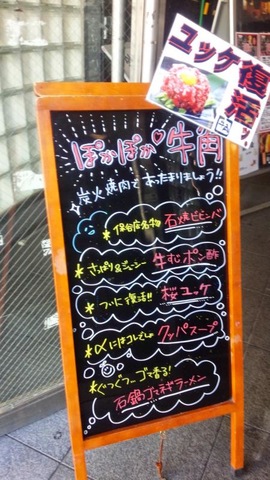 ユッケ復活ッ!!
ぽかぽか♡牛角
炭火焼肉であったまりましょう!!
石焼ビビンバ
*さっぱり&ジューシー 牛むポン酢
*ついに復活!! 桜ユッケ
*〆にはコレでしょ クッパスープ
*ぐつぐつ…ゴマ香る!
石鍋ゴマネギラーメン